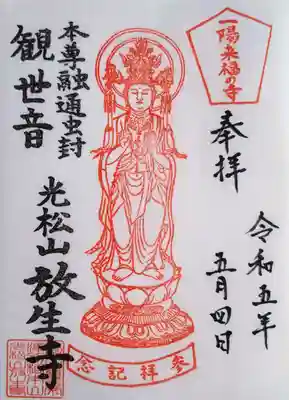 一陽来福の寺
奉拝
令和五年
五月四日
本尊融通虫封
観世音
光松山放生寺
参拝記念